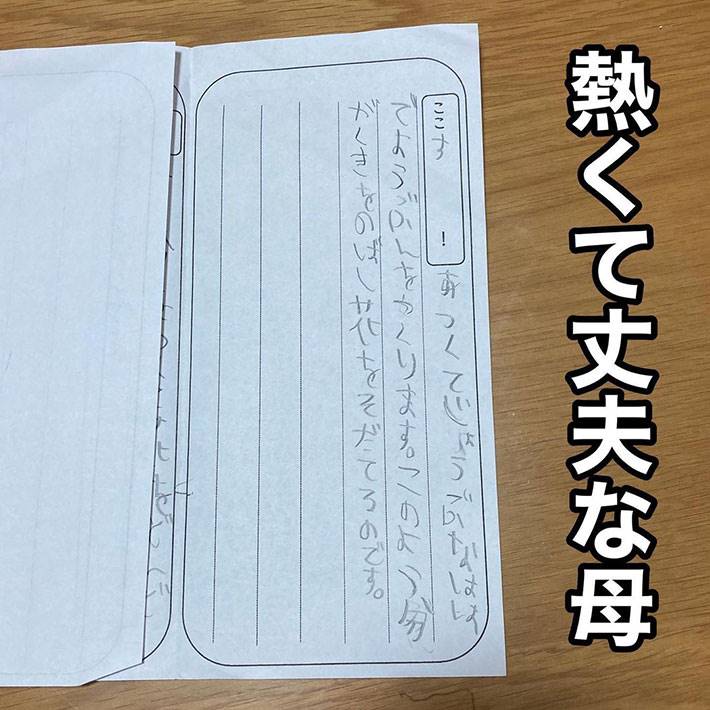 熱くて丈夫な母
ここす　！
あつくてじょうぶなはは
でようぶんをつくります。このよう分
がくきをのばし花をそだてるのです。